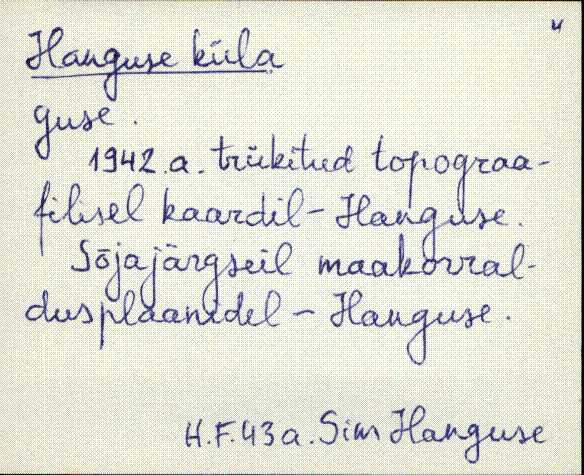 4
Hanguse küla
guse.
1942.a. trükitud topograa-
filisel kaardil - Hanguse.
Sõjajärgseil maakorral-
dusplaanidel - Hanguse.
H.F. 43a. Sims Hanguse